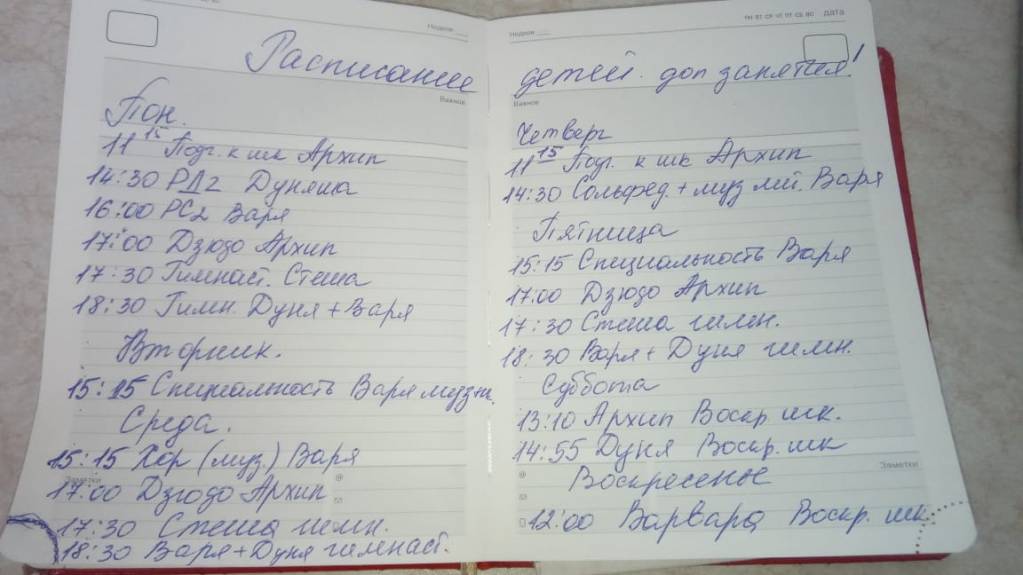 Неделя
Расписание
Важное
Пон.
11 15 Подг. к шк Архип
14:30 РД2 Дуняша
16:00 РС2 Варя
17:00 Дзюдо Архип
17:30 Гимнаст. Стеша
18:30 Гимн. Дуня + Варя
Вторник.
15:15 Специальность Варя муз
Среда.
15:15 Хор (муз.) Варя
Заметки
17:00 Дзюдо Архип
17:30 Стеша гимн.
18:30 Варя + Дуня гимнаст.
пн вт ср чт пт сб вс дата
Неделя
детей. доп занятия!
Важное
Четверг
11 15 Подг. к шк Архип
14:30 Сольфед. + муз лит. Варя
Пятница
15:15 Специальность Варя
17:00 Дзюдо Архип
17:30 Стеша гимн.
18:30 Варя + Дуня гимн.
Суббота
13:10 Архип Воскр шк.
14:55 Дуня Воскр. шк
Заметки
Воскресенье
12:00 Варвара Воскр. шк